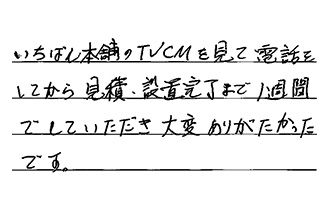 いちばん本舗のTVCMを見て電話を
してから見積、設置完了まで1週間
でしていただき大変ありがたかった
です。